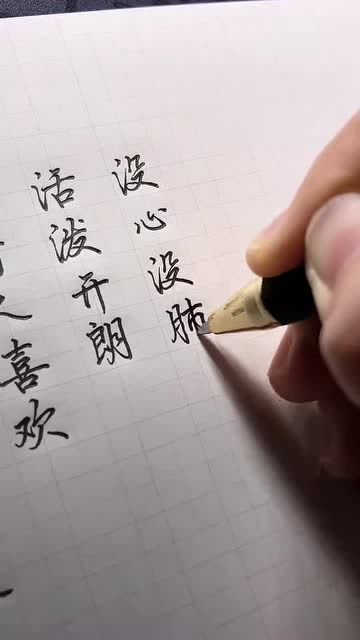 喜欢
活泼开朗
没心没肺